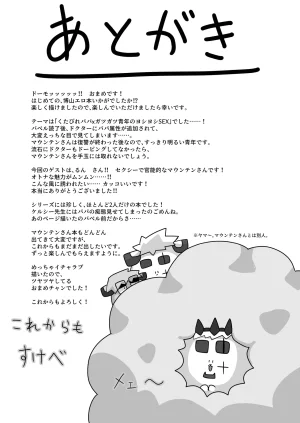 あとがき
ドーモッッッッッ!! おまめです!
はじめての、博山エロ本いかがでしたか!?
楽しく描けましたので、楽しんでいただけましたら幸いです。
テーマは「くたびれパパxガツガツ青年のヨシヨシSEX」でした……!
バベル読了後、ドクターにパパ属性が追加されて、
大変えっちな目で見てしまいます……。
マウンテンさんは復讐が終わった後なので、すっきり明るい青年です。
流石にドクターもドーピングしてなかったら、
マウンテンさんを手玉には取れないでしょう。
今回のゲストは、るん さん!! セクシーで官能的なマウンテンさんです!
オトナな魅力がムンムン……!!
こんな風に誘われたい…… カッコいいです!
本当にありがとうございました!!
シリーズには珍しく、ほとんど2人だけの本でした!
ケルシー先生にはパパの痴態見せてしまったのごめんね。
あのページ描いたのバベル前だからさ…
マウンテンさん本もどんどん
出てきて大変ですが、
これからもまだまだ出したいです。
ずっと楽しんでもらえますように。
めっちゃイチャラブ
描いたので、
ツヤツヤしてる
おまめチャンでした!
これからもよろしく!
※ヤマー、マウンテンさんとは別人。
これからも
すけべ
メェ〜